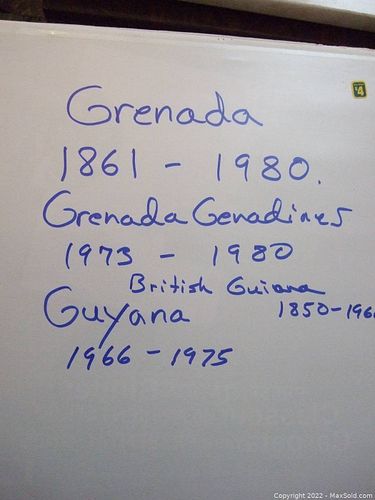 Grenada
1861 - 1980.
Grenada Genadines
1973 - 1980
British Guiana
1850-196
Guyana
1966 - 1975
Copyright 2022 - MaxSold.com